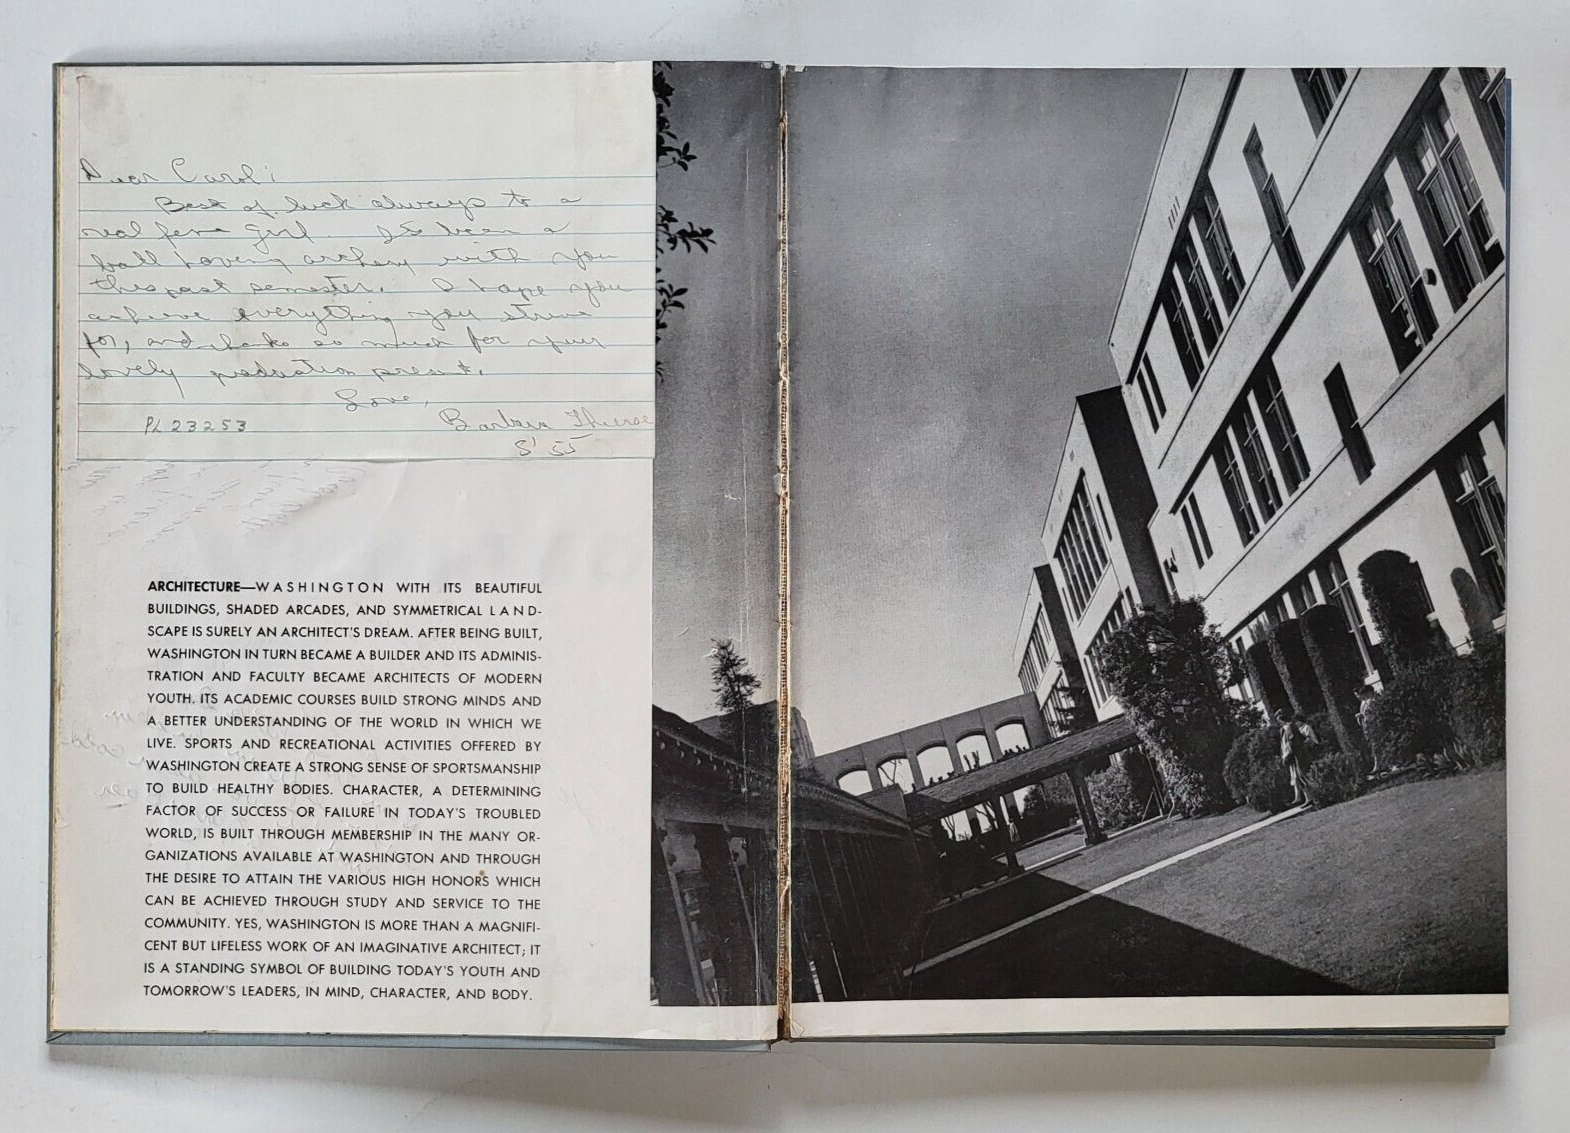 Dear Carol:
Best of luck always to a
real fine girl. It's been a
ball having archery with you
this past semester. I hope you
achieve everything you strive
for, and thanks so much for your
lovely graduation present.
Love,
PL 23253 Barbara
S' 55
ARCHITECTURE—WASHINGTON WITH ITS BEAUTIFUL
BUILDINGS, SHADED ARCADES, AND SYMMETRICAL LAND-
SCAPE IS SURELY AN ARCHITECT'S DREAM. AFTER BEING BUILT,
WASHINGTON IN TURN BECAME A BUILDER AND ITS ADMINIS-
TRATION AND FACULTY BECAME ARCHITECTS OF MODERN
YOUTH. ITS ACADEMIC COURSES BUILD STRONG MINDS AND
A BETTER UNDERSTANDING OF THE WORLD IN WHICH WE
LIVE. SPORTS AND RECREATIONAL ACTIVITIES OFFERED BY
WASHINGTON CREATE A STRONG SENSE OF SPORTSMANSHIP
TO BUILD HEALTHY BODIES. CHARACTER, A DETERMINING
FACTOR OF SUCCESS OR FAILURE IN TODAY'S TROUBLED
WORLD, IS BUILT THROUGH MEMBERSHIP IN THE MANY OR-
GANIZATIONS AVAILABLE AT WASHINGTON AND THROUGH
THE DESIRE TO ATTAIN THE VARIOUS HIGH HONORS WHICH
CAN BE ACHIEVED THROUGH STUDY AND SERVICE TO THE
COMMUNITY. YES, WASHINGTON IS MORE THAN A MAGNIFI-
CENT BUT LIFELESS WORK OF AN IMAGINATIVE ARCHITECT; IT
IS A STANDING SYMBOL OF BUILDING TODAY'S YOUTH AND
TOMORROW'S LEADERS, IN MIND, CHARACTER, AND BODY.